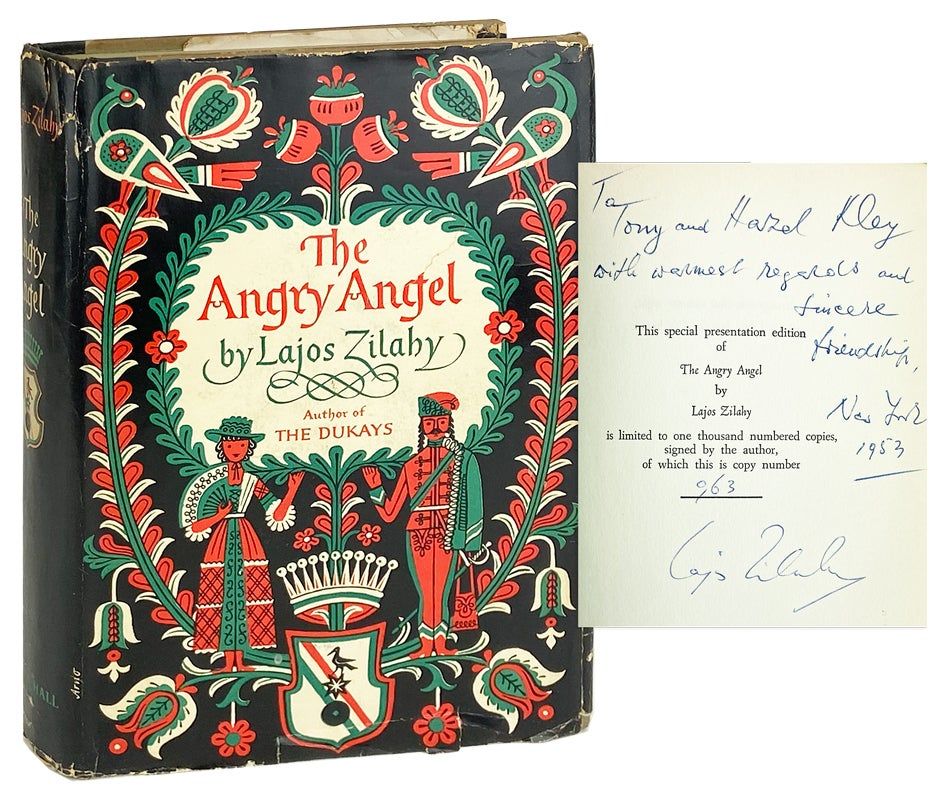 Lajos Zilahy
The
Angry
Angel
HALL
Arno
The
Angry Angel
by Lajos Zilahy
Author of
THE DUKAYS
To
Tony and Hazel Kley
with warmest regards and
sincere
friendship,
New York
1953
This special presentation edition
of
The Angry Angel
by
Lajos Zilahy
is limited to one thousand numbered copies,
signed by the author,
of which this is copy number
963
Lajos Zilahy